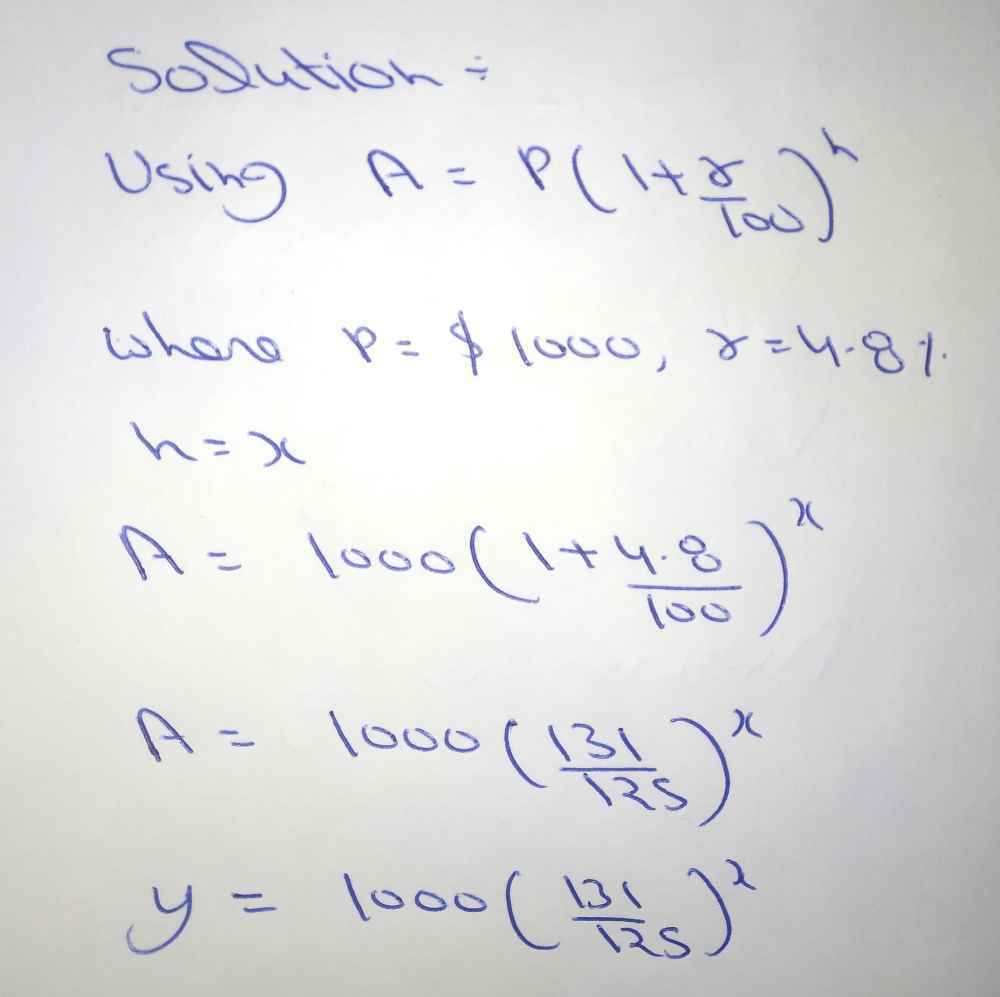 Solution :-
Using A = P(1+r/100)^n
where P = $1000, r = 4.8%
n = x
A = 1000(1+4.8/100)^x
A = 1000(131/125)^x
y = 1000(131/125)^x